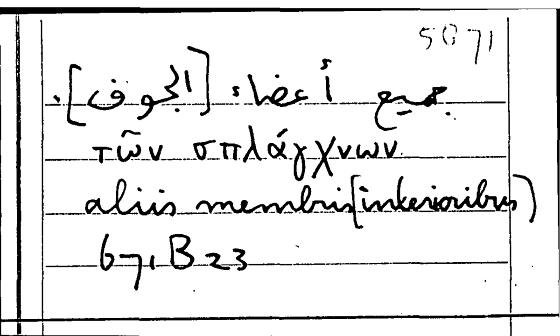 5871
جميع أعضاء [الجوف].
τῶν σπλάγχνων
aliis membris [interioribus)
671 B 23